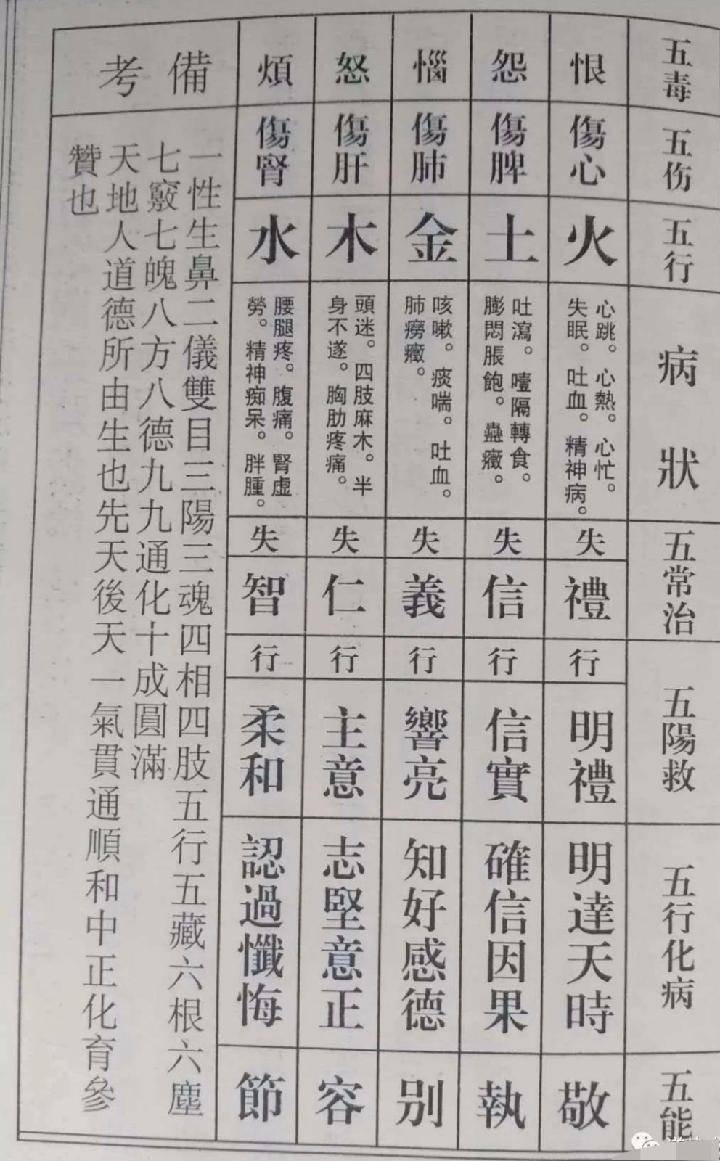 五毒
五伤
五行
病狀
五常治
五陽救
五行化病
五能
恨
傷心
火
心跳。心熱。心忙。
失眠。吐血。精神病。
失
禮
行
明禮
明達天時
敬
怨
傷脾
土
吐瀉。噎隔轉食。
膨悶脹飽。蠱癥。
失
信
行
信實
確信因果
執
惱
傷肺
金
咳嗽。痰喘。吐血。
肺癆癥。
失
義
行
響亮
知好感德
別
怒
傷肝
木
頭迷。四肢麻木。半
身不遂。胸肋疼痛。
失
仁
行
主意
志堅意正
容
煩
傷腎
水
腰腿疼。腹痛。腎虛
勞。精神痴呆。胖腫。
失
智
行
柔和
認過懺悔
節
備考
一性生鼻二儀雙目三陽三魂四相四肢五行五藏六根六塵
七竅七魄八方八德九九通化十成圓滿
天地人道德所由生也先天後天一氣貫通順和中正化育參
贊也